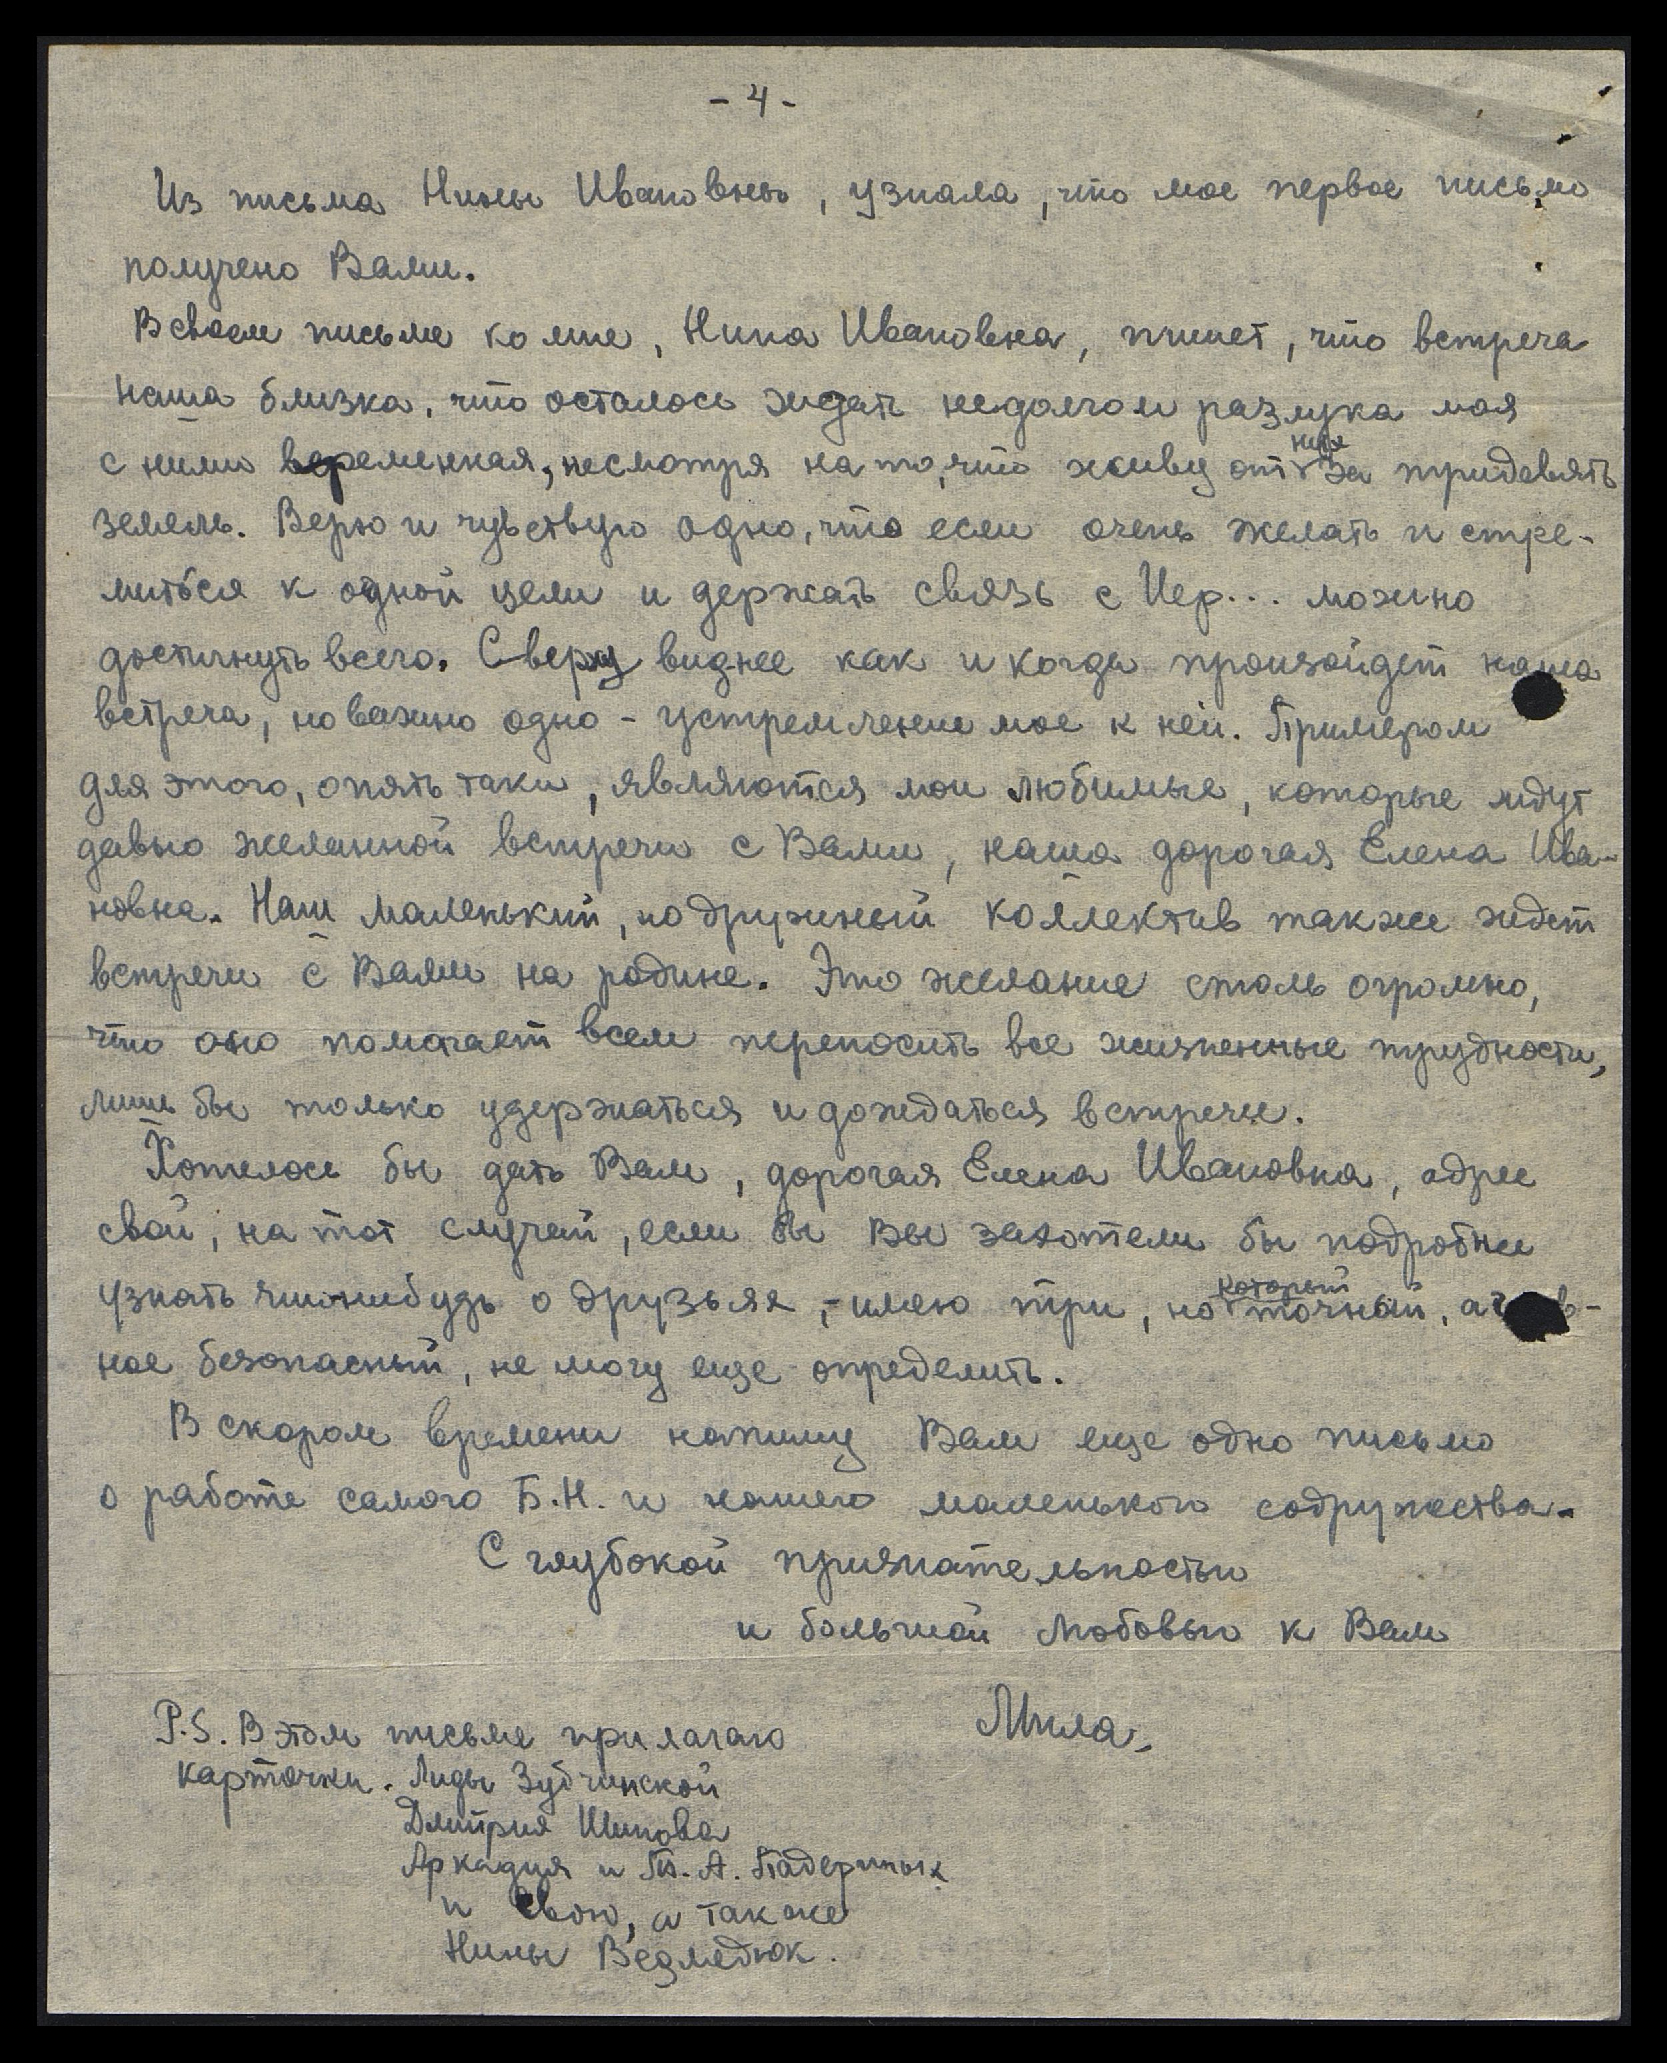 - 4 -
Из письма Нины Ивановны, узнала, что мое первое письмо
получено Вами.
В своем письме ко мне, Нина Ивановна, пишет, что встреча
наша близка, что осталось ждать недолго и разлука моя
с ними временная, несмотря на то, что живу от них за тридевять
земель. Верю и чувствую одно, что если очень желать и стре-
миться к одной цели и держать связь с Иер... можно
достигнуть всего. Сверху виднее как и когда произойдет наша
встреча, но важно одно - устремление мое к ней. Примером
для этого, опять таки, являются мои любимые, которые ждут
давно желанной встречи с Вами, наша дорогая Елена Ива-
новна. Наш маленький, но дружный коллектив также ждет
встречи с Вами на родине. Это желание столь огромно,
что оно помогает всем переносить все жизненные трудности,
лишь бы только удержаться и дождаться встречи.
Хотелось бы дать Вам, дорогая Елена Ивановна, адрес
свой, на тот случай, если бы Вы захотели бы подробнее
узнать что-нибудь о друзьях, - имею три, но который точный, а
ное безопасный, не могу еще определить.
В скором времени напишу Вам еще одно письмо
о работе самого Б.Н. и нашего маленького содружества.
С глубокой признательностью
и большой любовью к Вам
Мила.
P.S. В этом письме прилагаю
карточки. Лиды Зубчинской
Дмитрия Шипова
Аркадия и А. Падериных
и свою, а также
Нины Ведмедюк.